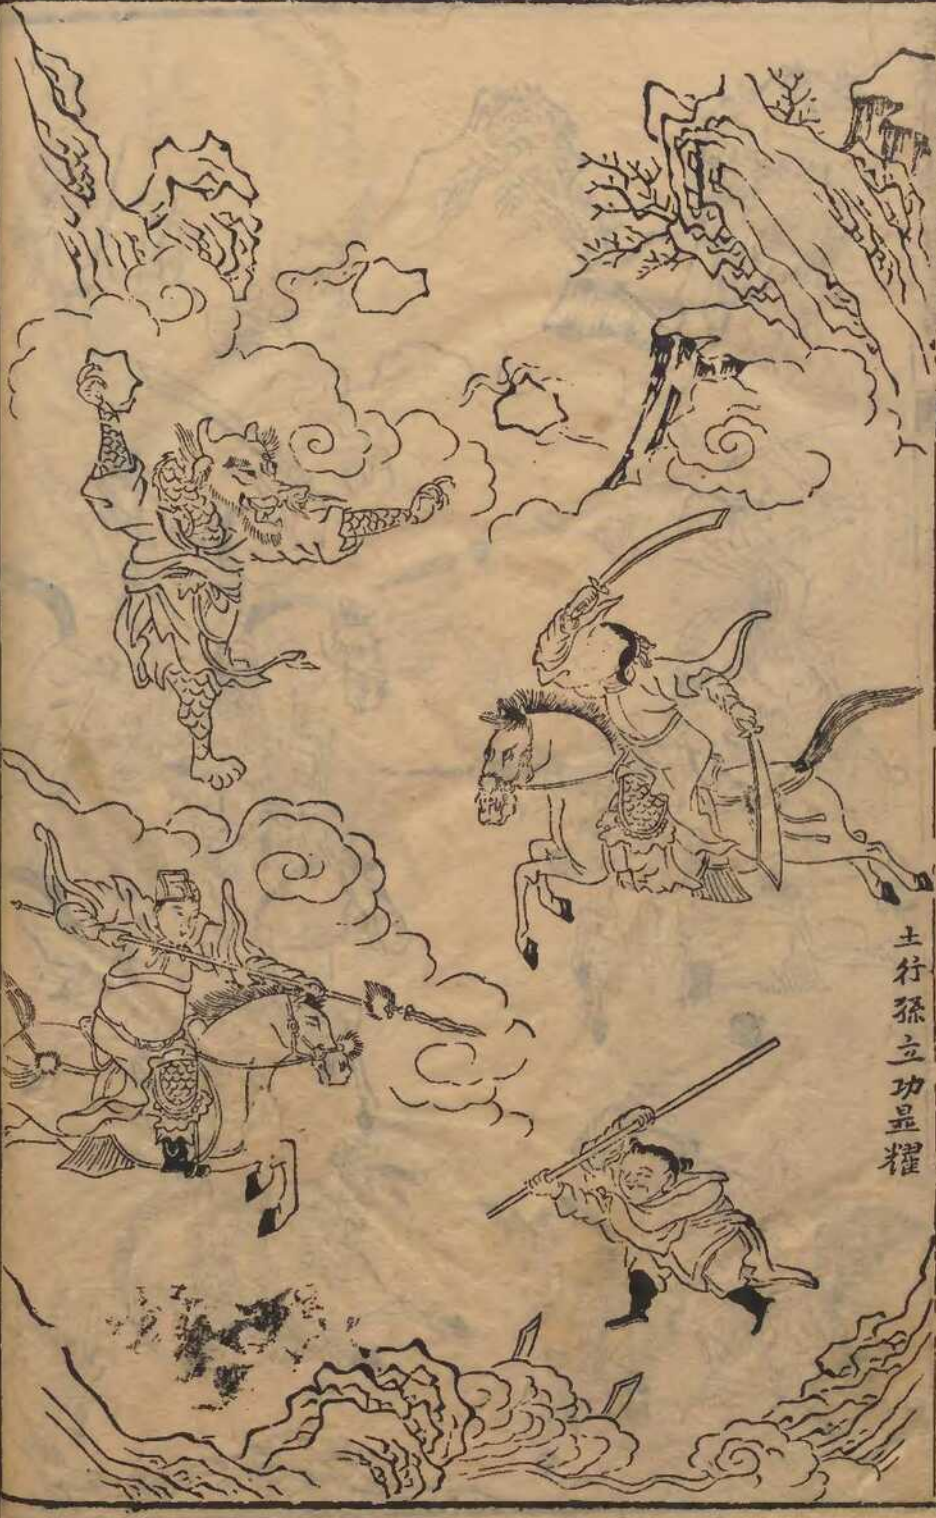 土行孫立功显耀